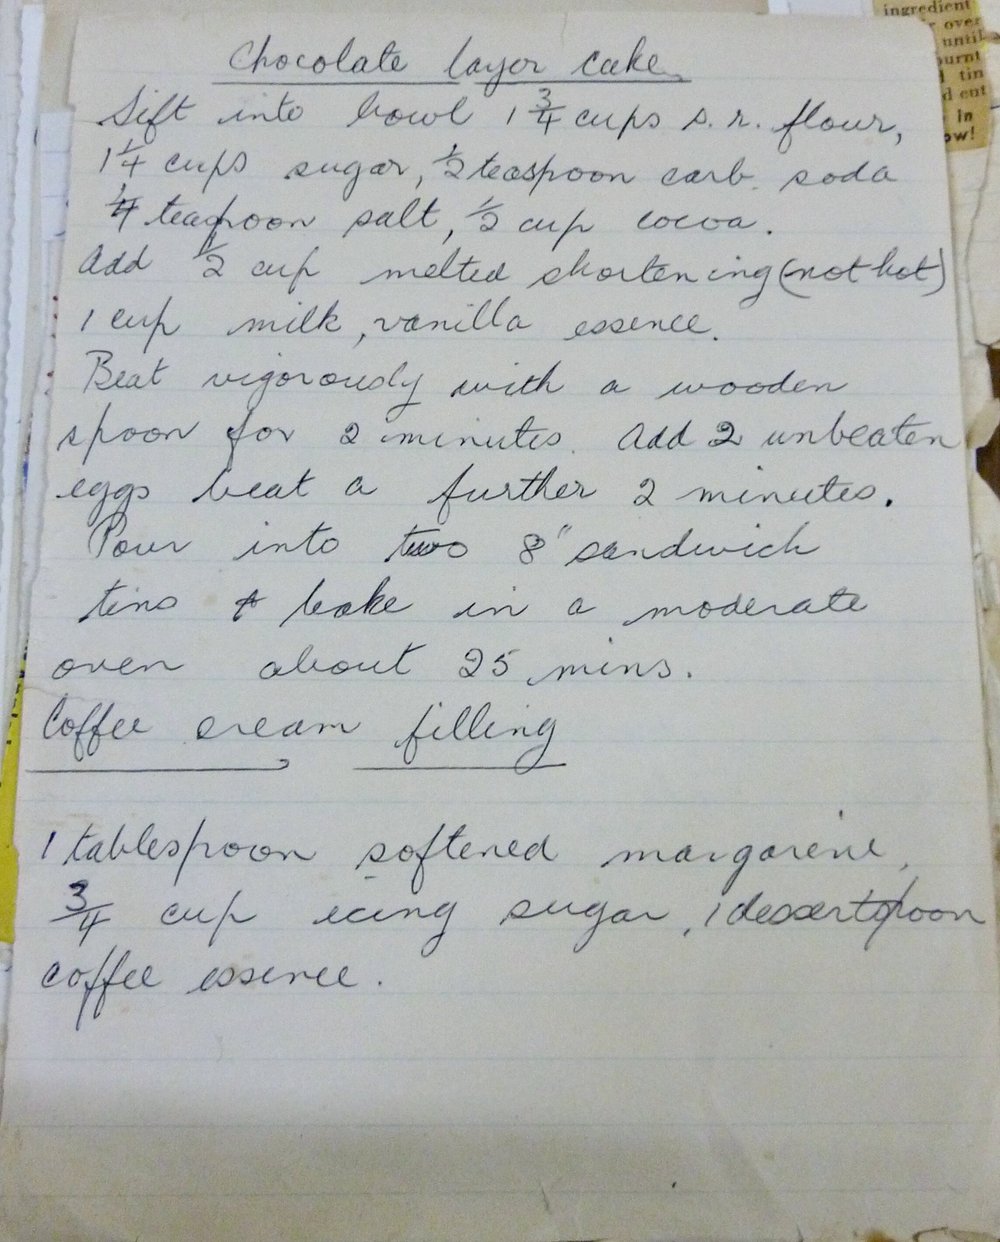 Chocolate layer cake
Sift into bowl 1 3/4 cups s.r. flour,
1 1/4 cups sugar, 1/2 teaspoon carb. soda
1/4 teaspoon salt, 1/2 cup cocoa.
Add 1/2 cup melted shortening (not hot)
1 cup milk, vanilla essence.
Beat vigorously with a wooden
spoon for 2 minutes. Add 2 unbeaten
eggs beat a further 2 minutes.
Pour into two 8" sandwich
tins & bake in a moderate
oven about 25 mins.
Coffee cream filling
1 tablespoon softened margarine,
3/4 cup icing sugar, 1 dessertspoon
coffee essence.
ingredient
over
until
burnt
tin
In